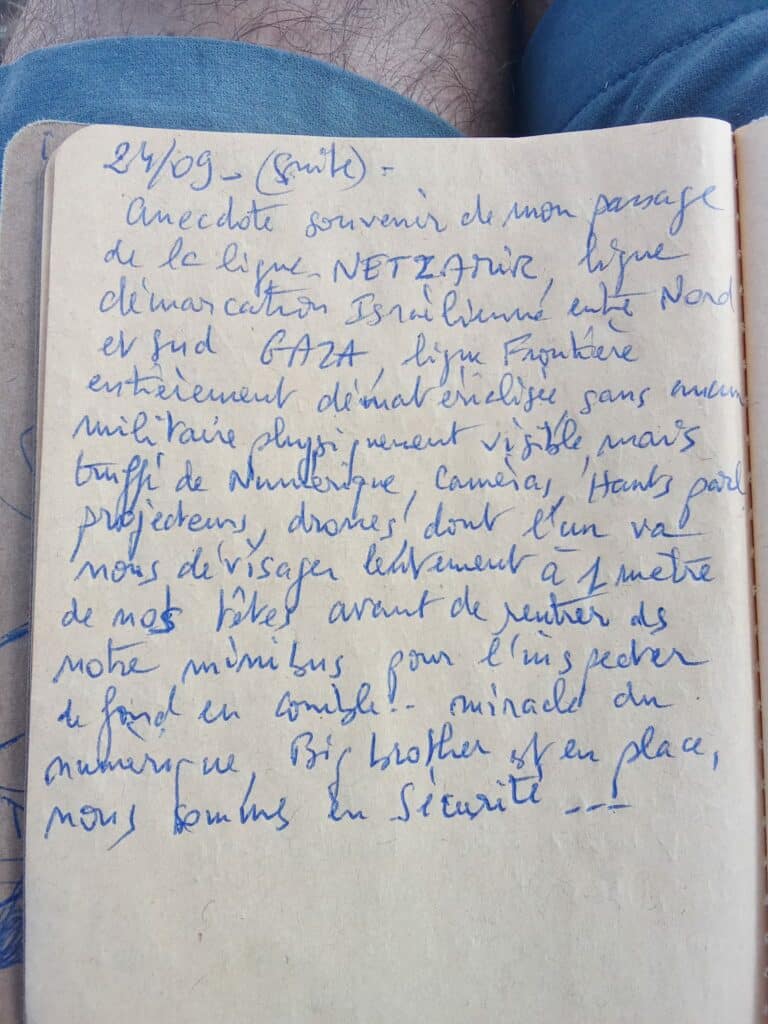 24/09 - (suite) -
Anecdote souvenir de mon passage
de la ligne NETZARIR, ligne
démarcation Israëlienne entre Nord
et Sud GAZA, ligne Frontière
entièrement dématérialisée sans aucun
militaire physiquement visible, mais
truffé de Numérique, Caméras, Hauts parl
projecteurs, drones dont l'un va
nous dévisager lentement à 1 mètre
de nos têtes avant de rentrer ds
notre minibus pour l'inspecter
de fond en comble!.. miracle du
numérique, Big brother est en place,
nous sommes en Sécurité ---